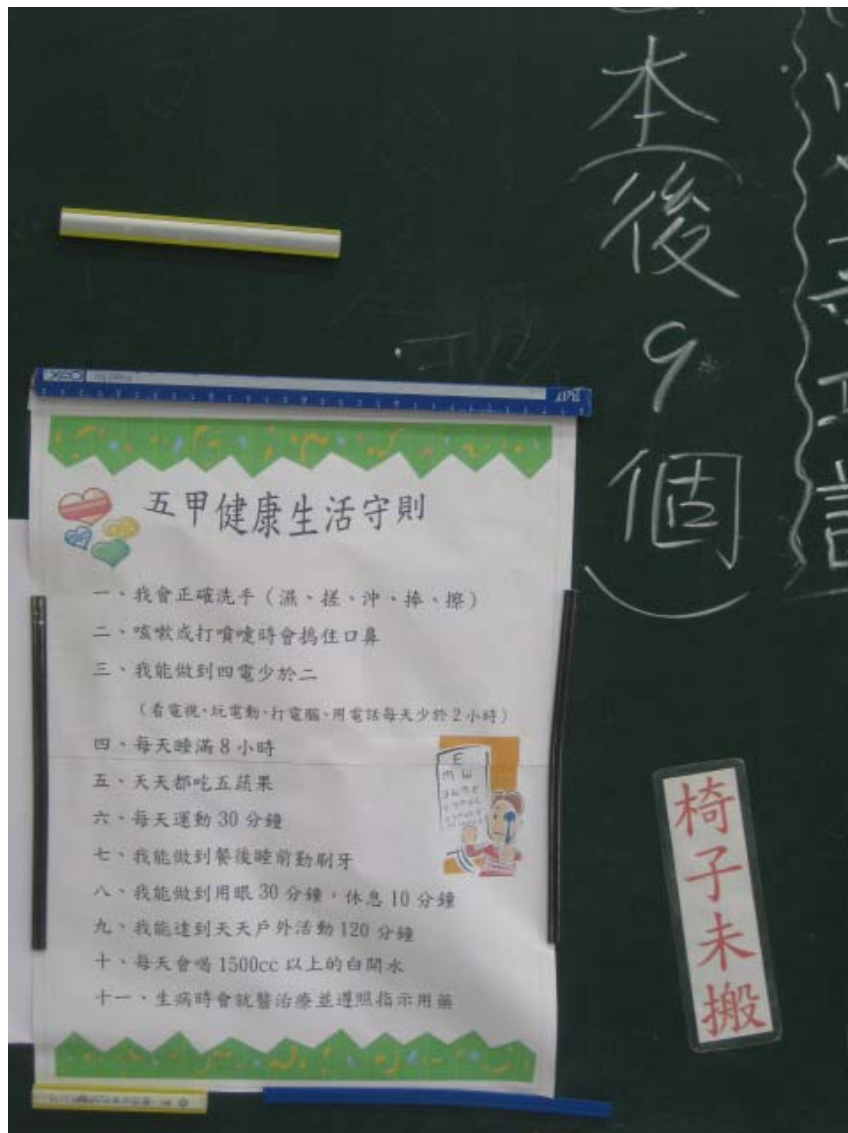 五甲健康生活守則
一、我會正確洗手（濕、搓、沖、捧、擦）
二、咳嗽或打噴嚏時會摀住口鼻
三、我能做到四電少於二
（看電視、玩電動、打電腦、用電話每天少於2小時）
四、每天睡滿8小時
五、天天都吃五蔬果
六、每天運動30分鐘
七、我能做到餐後睡前勤刷牙
八、我能做到用眼30分鐘，休息10分鐘
九、我能達到天天戶外活動120分鐘
十、每天會喝1500cc以上的白開水
十一、生病時會就醫治療並遵照指示用藥
本(後9個)
椅子未搬